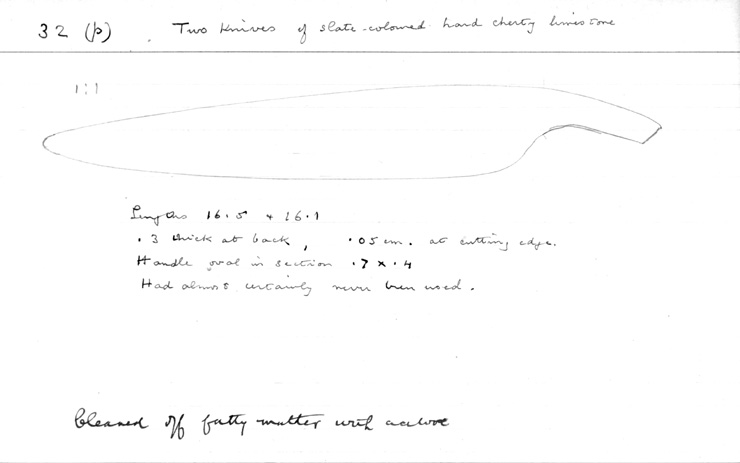 32 (p) . Two Knives of slate-coloured hard cherty limestone
1:1
Lengths 16.5 + 16.1
.3 thick at back, .05 cm. at cutting edge.
Handle oval in section .7 x .4
Had almost certainly never been used.
Cleaned off fatty matter with acetone